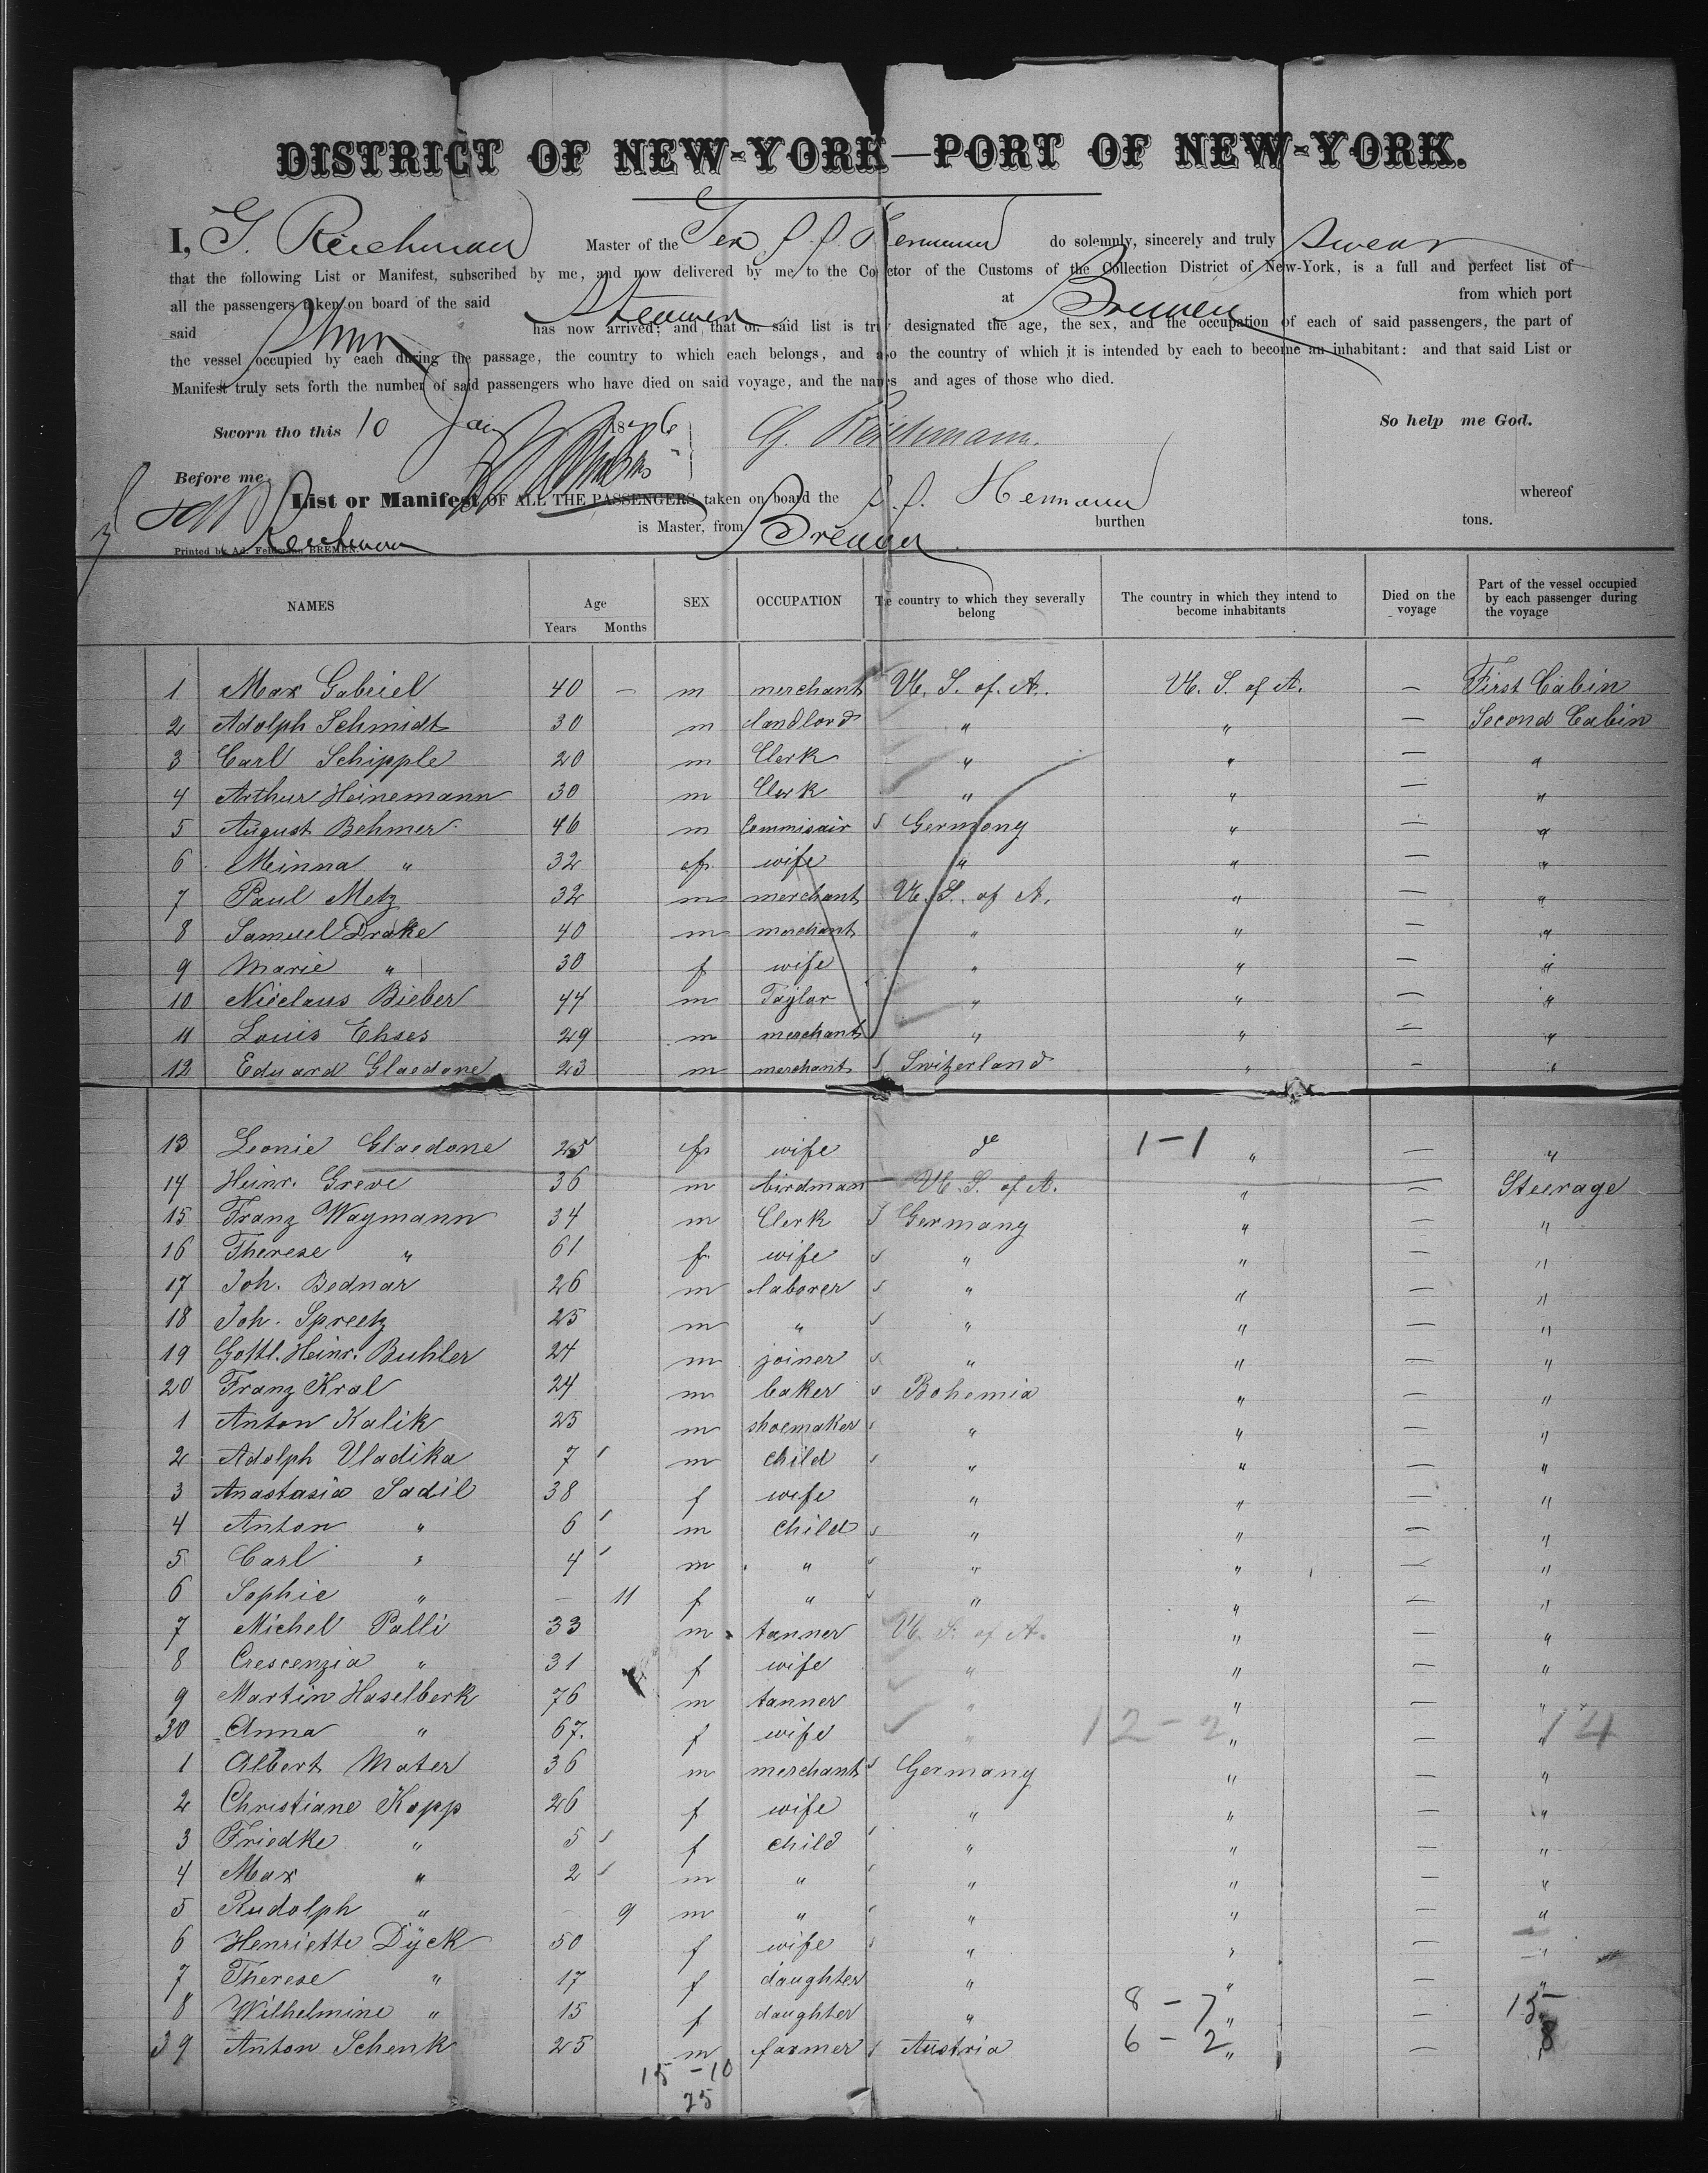 DISTRICT OF NEW-YORK—PORT OF NEW-YORK.
I, G. Reichman Master of the Ger. S. S. Hermann do solemnly, sincerely and truly swear
that the following List or Manifest, subscribed by me, and now delivered by me to the Co ctor of the Customs of the Collection District of New-York, is a full and perfect list of
all the passengers taken on board of the said Steamer at Bremen from which port
said Stmr has now arrived; and that on said list is truly designated the age, the sex, and the occupation of each of said passengers, the part of
the vessel occupied by each during the passage, the country to which each belongs, and also the country of which it is intended by each to become an inhabitant: and that said List or
Manifest truly sets forth the number of said passengers who have died on said voyage, and the names and ages of those who died.
So help me God.
Sworn tho this 10 Jany 1876 G. Reichmann.
Before me
List or Manifest OF ALL THE PASSENGERS taken on board the S. S. Hermann whereof
Reichman is Master, from Bremen burthen tons.
Printed by Ad. Feldmann BREMEN.
NAMES Age Years Months SEX OCCUPATION The country to which they severally belong The country in which they intend to become inhabitants Died on the voyage Part of the vessel occupied by each passenger during the voyage
1 Max Gabriel 40 — m merchant U. S. of. A. U. S. of A. — First Cabin
2 Adolph Schmidt 30 m landlord " " — Second Cabin
3 Carl Schipple 20 m Clerk " " — "
4 Arthur Heinemann 30 m Clerk " " — "
5 August Behmer 46 m Commisair Germany " — "
6 Minna " 32 f wife " " — "
7 Paul Metz 32 m merchant U. S. of A. " — "
8 Samuel Drake 40 m merchant " " — "
9 Marie " 30 f wife " " — "
10 Niclaus Bieber 44 m Taylor " " — "
11 Louis Ehses 29 m merchant " " — "
12 Eduard Glaedone 23 m merchant Switzerland " — "
13 Leonie Glaedone 25 f wife do 1-1 " — "
14 Heinr. Greve 36 m birdman U. S. of A. " — Steerage
15 Franz Waymann 34 m Clerk Germany " — "
16 Therese " 61 f wife " " — "
17 Joh. Bednar 26 m laborer " " — "
18 Joh. Spreetz 25 m " " " — "
19 Gottl. Heinr. Buhler 24 m joiner " " — "
20 Franz Kral 24 m baker Bohemia " — "
1 Anton Kalik 25 m shoemaker " " — "
2 Adolph Vladika 7 m child " " — "
3 Anastasia Sadil 38 f wife " " — "
4 Anton " 6 m child " " — "
5 Carl " 4 m " " " — "
6 Sophie " — 11 f " " " — "
7 Michel Palli 33 m tanner U. S. of A. " — "
8 Crescenzia " 31 f wife " " — "
9 Martin Haselberk 76 m tanner " " — "
30 Anna " 67. f wife " 12-2 " — " 14
1 Albert Mater 36 m merchant Germany " — "
2 Christiane Kopp 26 f wife " " — "
3 Friedke " 5 f child " " — "
4 Max " 2 m " " " — "
5 Rudolph " — 9 m " " " — "
6 Henriette Dÿck 50 f wife " " — "
7 Therese " 17 f daughter " " — "
8 Wilhelmine " 15 f daughter " 8-7 " — " 15
39 Anton Schenk 25 m farmer Austria 6-2 " — " 8
15-10
25